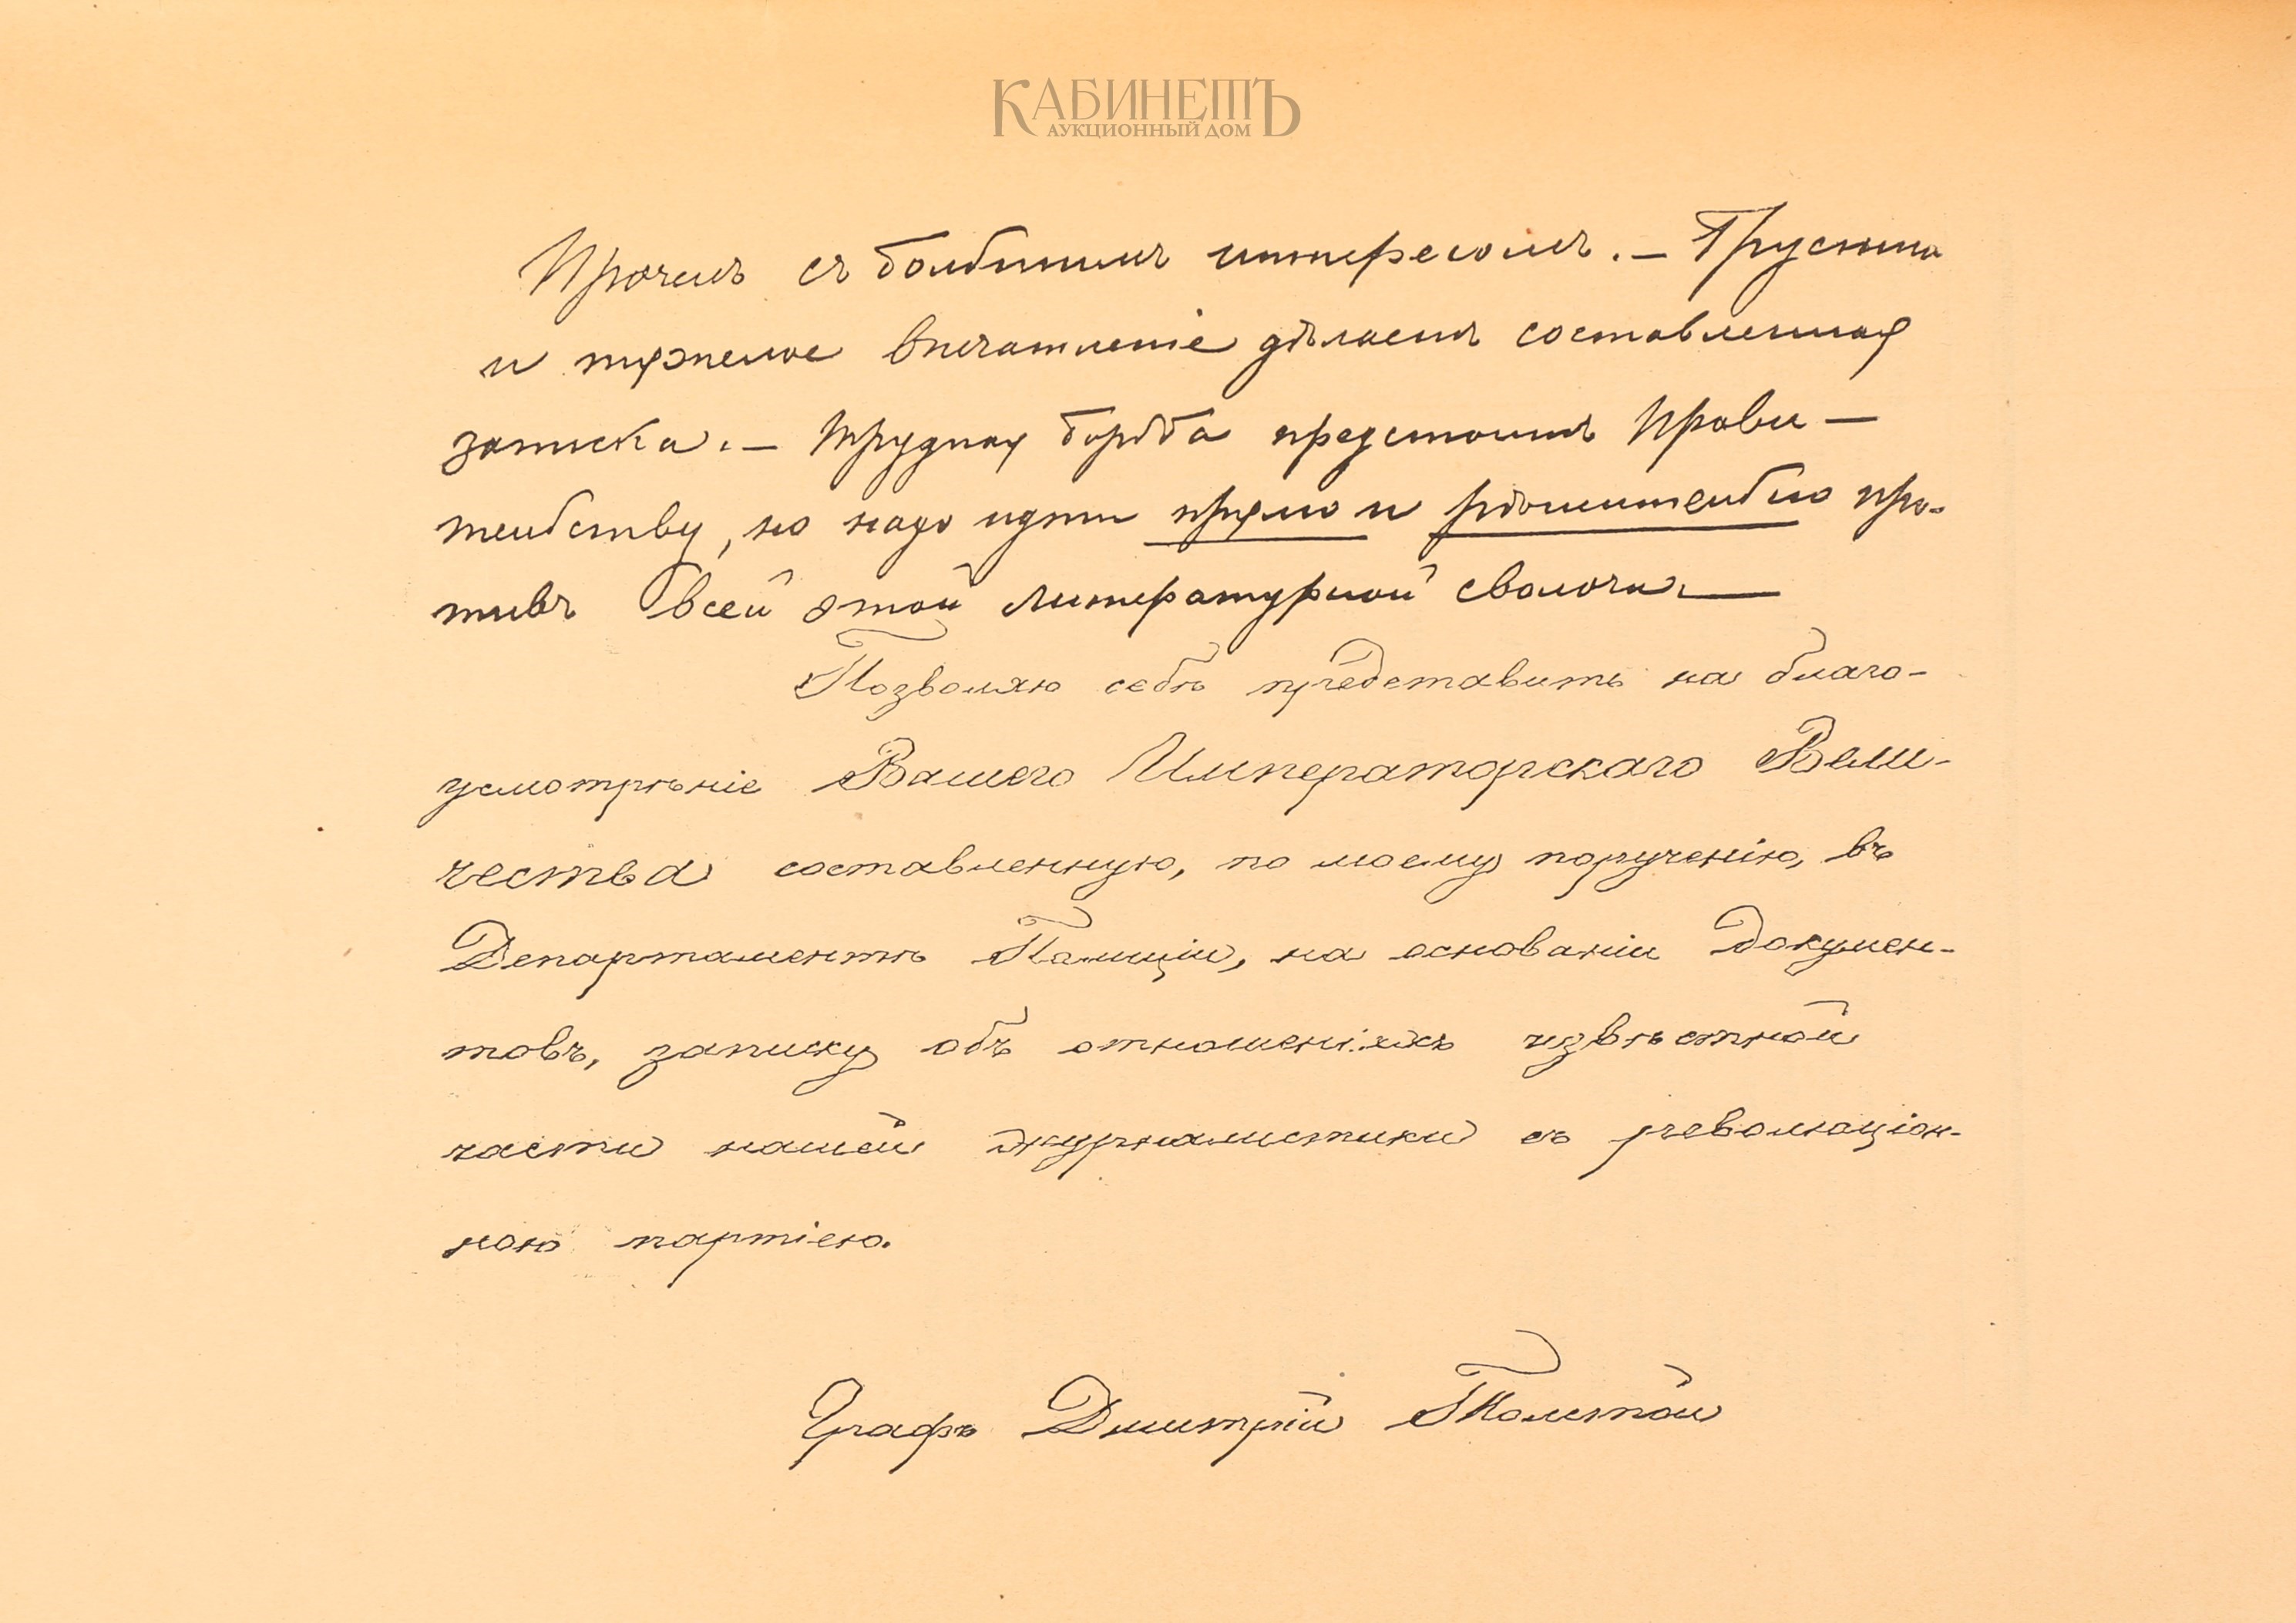 КАБИНЕТЪ
АУКЦИОННЫЙ ДОМ
Прочелъ съ большимъ интересомъ. – Грустно
и тяжелое впечатленіе дѣлаетъ составленная
записка. – Трудная борьба предстоитъ Прави-
тельству, но надо идти прямо и рѣшительно про-
тивъ всей этой литературной сволочи —
Позволяю себѣ представить на благо-
усмотрѣніе Вашего Императорскаго Вели-
чества составленную, по моему порученію, въ
Департаментѣ Полиціи, на основаніи докумен-
товъ, записку объ отношеніяхъ извѣстной
части нашей журналистики съ революціон-
ною партіею.
Графъ Дмитрій Толстой